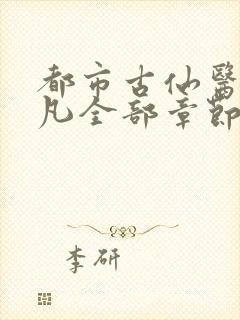 都市古仙醫
凡全部章節
李研